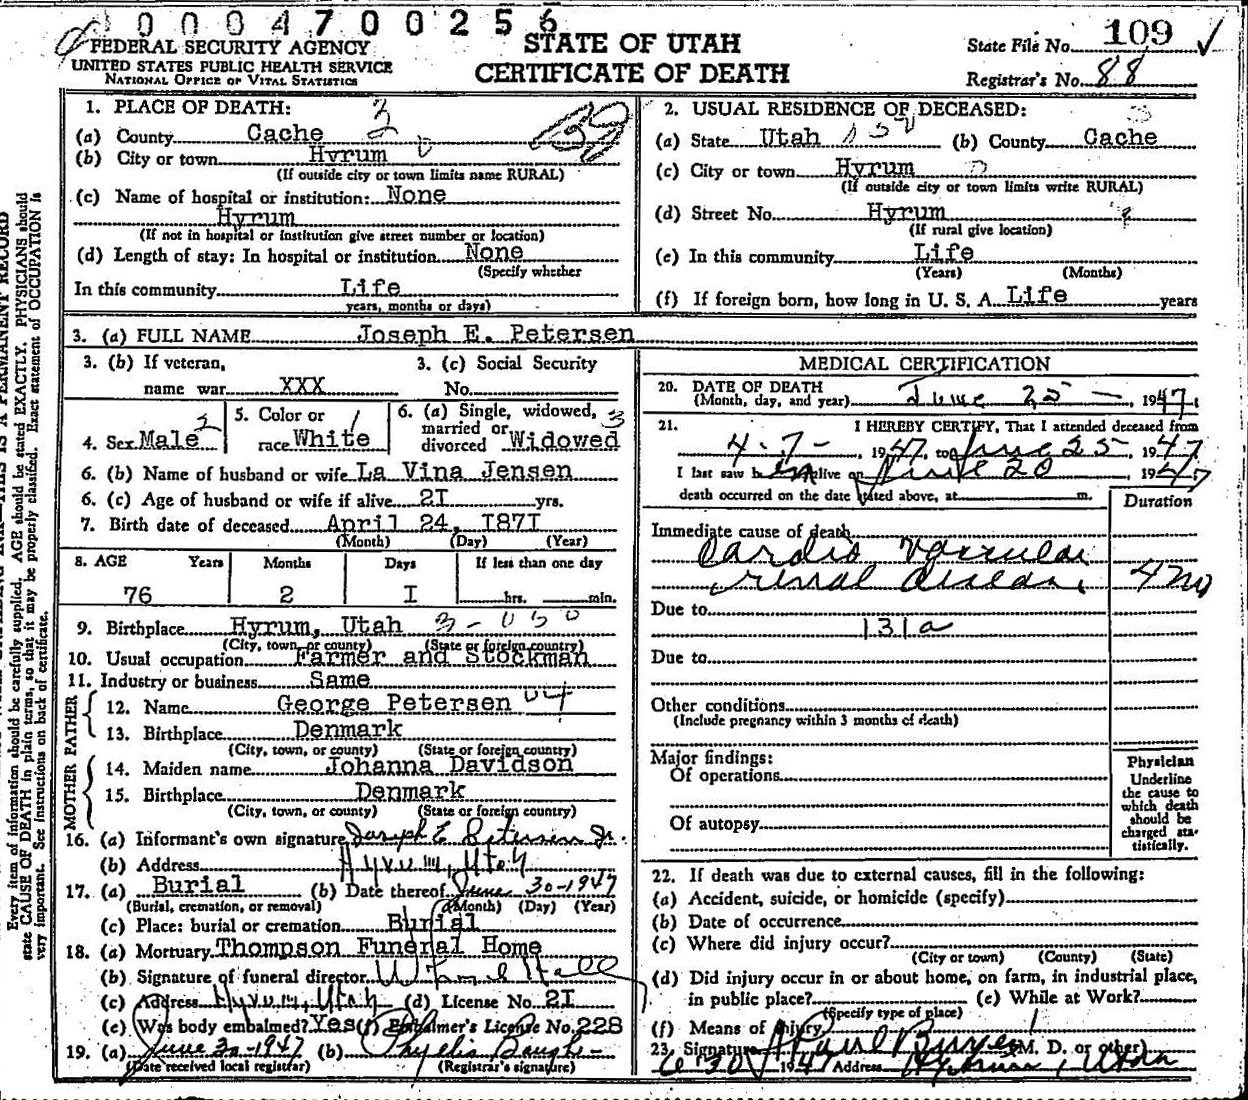 0 0 0 4 7 0 0 2 5 6
FEDERAL SECURITY AGENCY
UNITED STATES PUBLIC HEALTH SERVICE
NATIONAL OFFICE OF VITAL STATISTICS
STATE OF UTAH
CERTIFICATE OF DEATH
State File No. 109 ✓
Registrar's No. 88
1. PLACE OF DEATH:
(a) County Cache
(b) City or town Hyrum
(If outside city or town limits name RURAL)
(c) Name of hospital or institution: None
Hyrum
(If not in hospital or institution give street number or location)
(d) Length of stay: In hospital or institution None
(Specify whether
In this community Life
years, months or days)
2. USUAL RESIDENCE OF DECEASED:
(a) State Utah (b) County Cache
(c) City or town Hyrum
(If outside city or town limits write RURAL)
(d) Street No. Hyrum
(If rural give location)
(e) In this community Life
(Years) (Months)
(f) If foreign born, how long in U. S. A. Life years
3. (a) FULL NAME Joseph E. Petersen
3. (b) If veteran,
name war XXX
3. (c) Social Security
No.
4. Sex Male 2
5. Color or
race White 1
6. (a) Single, widowed, 3
married or
divorced Widowed
6. (b) Name of husband or wife La Vina Jensen
6. (c) Age of husband or wife if alive 2I yrs.
7. Birth date of deceased April 24, I87I
(Month) (Day) (Year)
8. AGE Years Months Days If less than one day
76 2 I hrs. min.
9. Birthplace Hyrum, Utah
(City, town, or county) (State or foreign country)
10. Usual occupation Farmer and Stockman
11. Industry or business Same
FATHER
12. Name George Petersen
13. Birthplace Denmark
(City, town, or county) (State or foreign country)
MOTHER
14. Maiden name Johanna Davidson
15. Birthplace Denmark
(City, town, or county) (State or foreign country)
16. (a) Informant's own signature Joseph E Petersen Jr.
(b) Address Hyrum, Utah
17. (a) Burial (b) Date thereof June 30-1947
(Burial, cremation, or removal) (Month) (Day) (Year)
(c) Place: burial or cremation Burial
18. (a) Mortuary Thompson Funeral Home
(b) Signature of funeral director
(c) Address Hyrum, Utah (d) License No. 2I
(e) Was body embalmed? Yes (f) Embalmer's License No. 228
19. (a) June 30-1947 (b) Phyllis
(Date received local registrar) (Registrar's signature)
MEDICAL CERTIFICATION
20. DATE OF DEATH
(Month, day, and year) June 25 - , 1947.
21. I HEREBY CERTIFY, That I attended deceased from
4-7- , 1947, to June 25, 1947.
I last saw him alive on June 20 1947
death occurred on the date stated above, at m.
Duration
Immediate cause of death
Cardio Vascular
renal disease,
Due to
131a
Due to
Other conditions
(Include pregnancy within 3 months of death)
Major findings:
Of operations
Of autopsy
Physician
Underline
the cause to
which death
should be
charged sta-
tistically.
22. If death was due to external causes, fill in the following:
(a) Accident, suicide, or homicide (specify)
(b) Date of occurrence
(c) Where did injury occur?
(City or town) (County) (State)
(d) Did injury occur in or about home, on farm, in industrial place,
in public place? (e) While at Work?
(Specify type of place)
(f) Means of injury
23. Signature (M. D. or other)
6-30 1947 Address Hyrum, Utah
THIS IS A PERMANENT RECORD
Every item of information should be carefully supplied. AGE should be stated EXACTLY. PHYSICIANS should
state CAUSE OF DEATH in plain terms, so that it may be properly classified. Exact statement of OCCUPATION is
very important. See instructions on back of certificate.